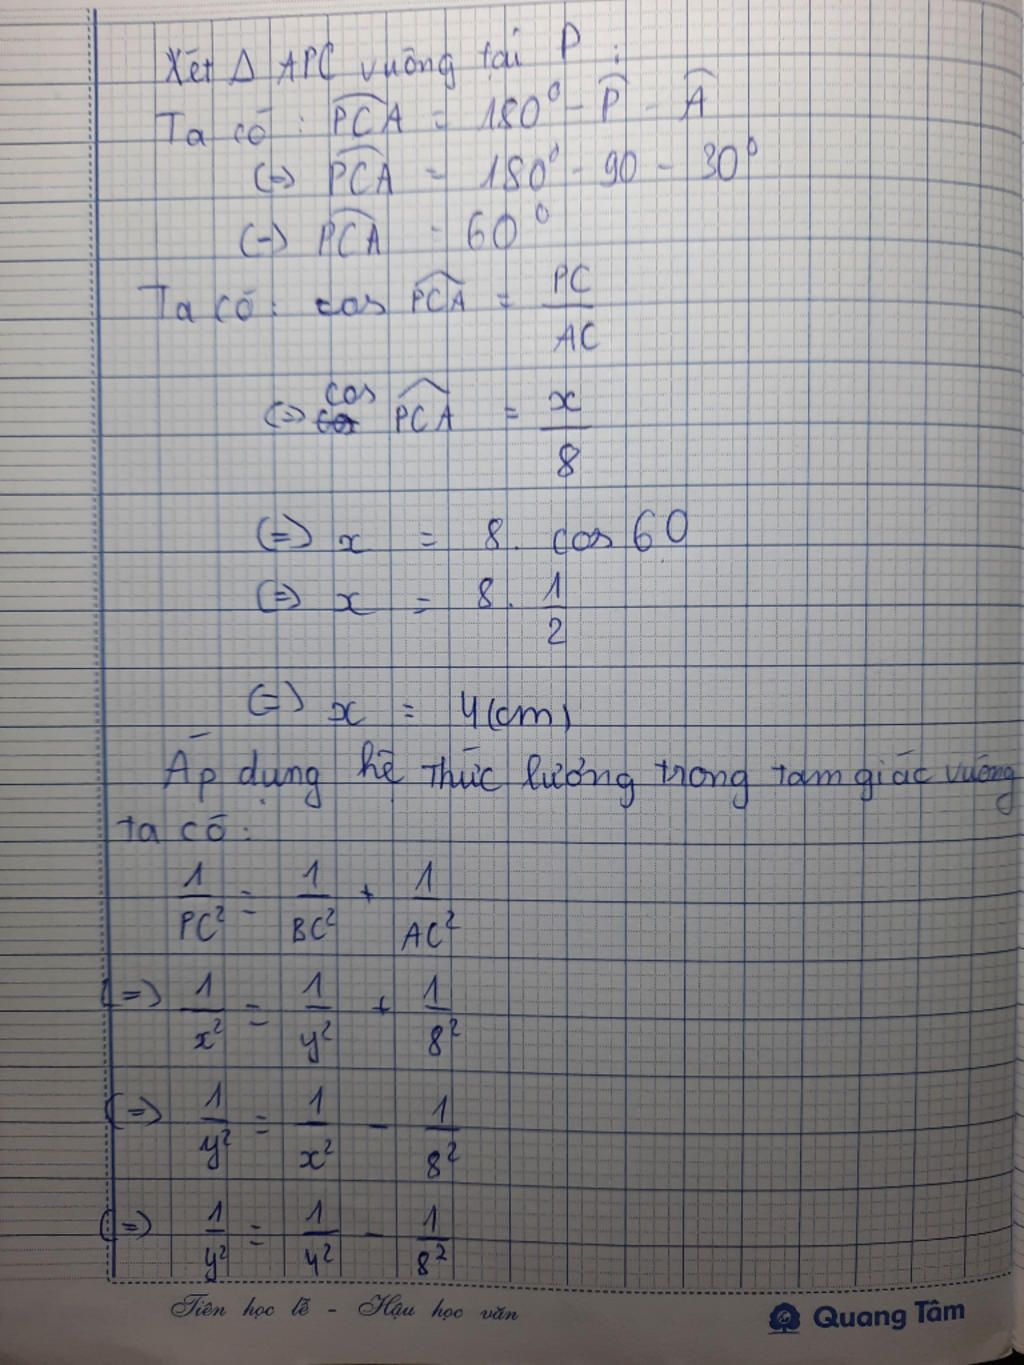 Xét Δ APC vuông tại P :
Ta có : \widehat{PCA} = 180° - \widehat{P} - \widehat{A}
(=) \widehat{PCA} = 180° - 90 - 30°
(=) \widehat{PCA} = 60°
Ta có : cos \widehat{PCA} = \frac{PC}{AC}
(=) cos \widehat{PCA} = \frac{x}{8}
(=) x = 8 . cos 60
(=) x = 8 . \frac{1}{2}
(=) x = 4 (cm)
Áp dụng hệ thức lượng trong tam giác vuông
ta có :
\frac{1}{PC²} = \frac{1}{BC²} + \frac{1}{AC²}
(=) \frac{1}{x²} = \frac{1}{y²} + \frac{1}{8²}
(=) \frac{1}{y²} = \frac{1}{x²} - \frac{1}{8²}
(=) \frac{1}{y²} = \frac{1}{4²} - \frac{1}{8²}
Tiên học lễ - Hậu học văn
Quang Tâm